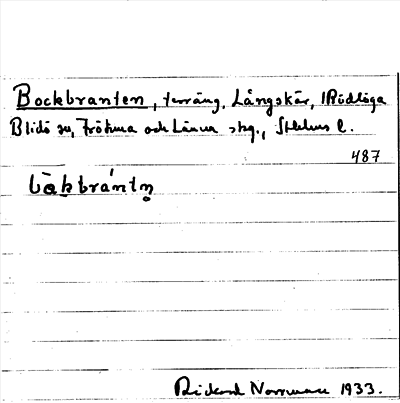 Bockbranten, terräng, Långskär, Rödlöga
Blidö sn, Frötuna och Länna skg., Sthlms l.
487
bòkbrántn̥
Rickard Norrman 1933.